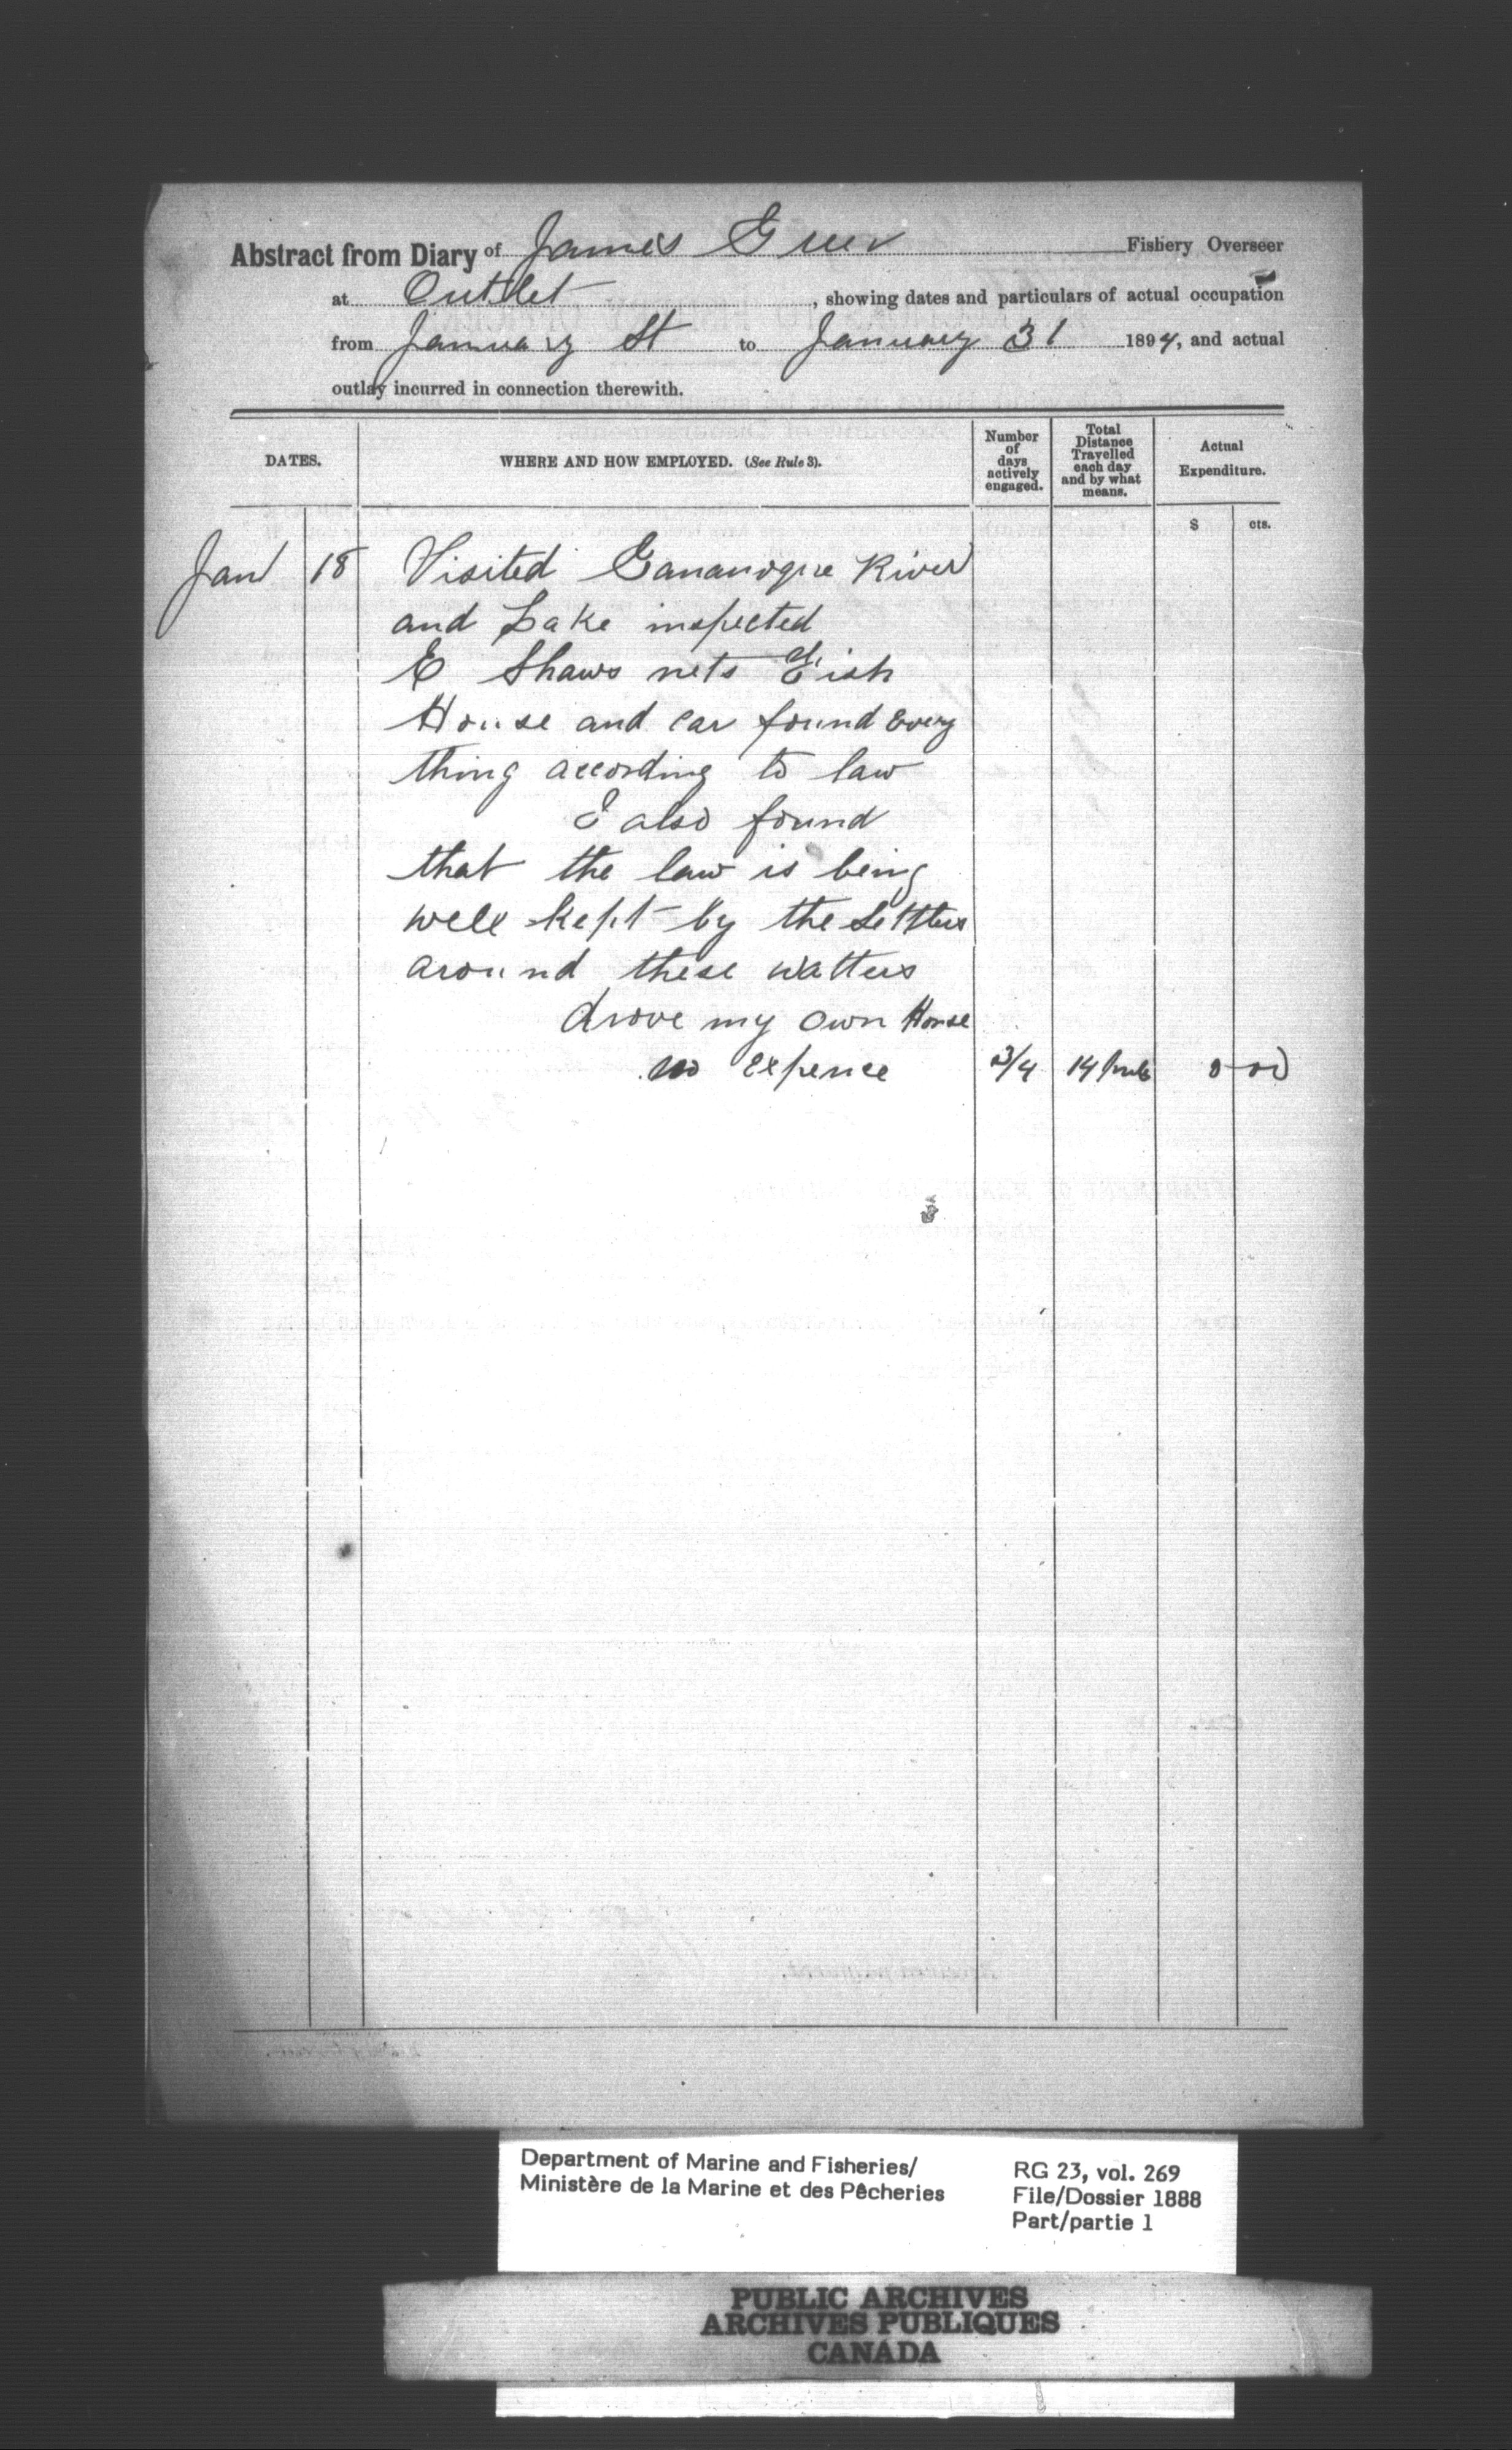 Abstract from Diary of James Greer Fishery Overseer
at Outlet, showing dates and particulars of actual occupation
from January St to January 31 1894, and actual
outlay incurred in connection therewith.
DATES. WHERE AND HOW EMPLOYED. (See Rule 3). Number of days actively engaged. Total Distance Travelled each day and by what means. Actual Expenditure.
$ cts.
Jan 18 Visited Gananoque River
and Lake inspected
E Shaws nets Fish
House and car found Every
thing according to law
I also found
that the law is being
well kept by the Settlers
around these watters
drove my own Horse
no Expence 3/4 14 mls 0-00
Department of Marine and Fisheries/
Ministère de la Marine et des Pêcheries
RG 23, vol. 269
File/Dossier 1888
Part/partie 1
PUBLIC ARCHIVES
ARCHIVES PUBLIQUES
CANADA